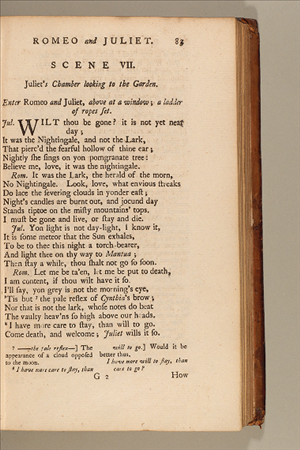 ROMEO and JULIET. 83
SCENE VII.
Juliet's Chamber looking to the Garden.
Enter Romeo and Juliet, above at a window; a ladder
of ropes set.
Jul. WILT thou be gone? it is not yet near
day;
It was the Nightingale, and not the Lark,
That pierc'd the fearful hollow of thine ear;
Nightly she sings on yon pomgranate tree:
Believe me, love, it was the nightingale.
Rom. It was the Lark, the herald of the morn,
No Nightingale. Look, love, what envious streaks
Do lace the severing clouds in yonder east;
Night's candles are burnt out, and jocund day
Stands tiptoe on the misty mountains' tops.
I must be gone and live, or stay and die.
Jul. Yon light is not day-light, I know it,
It is some meteor that the Sun exhales,
To be to thee this night a torch-bearer,
And light thee on thy way to Mantua;
Then stay a while, thou shalt not go so soon.
Rom. Let me be ta'en, let me be put to death,
I am content, if thou wilt have it so.
I'll say, yon grey is not the morning's eye,
'Tis but ⁷ the pale reflex of Cynthia's brow;
Nor that is not the lark, whose notes do beat
The vaulty heav'ns so high above our heads.
⁸ I have more care to stay, than will to go.
Come death, and welcome; Juliet wills it so.
⁷ —the pale reflex—] The
appearance of a cloud opposed
to the moon.
⁸ I have more care to stay, than
will to go.] Would it be
better thus,
I have more will to stay, than
care to go?
G 2 How